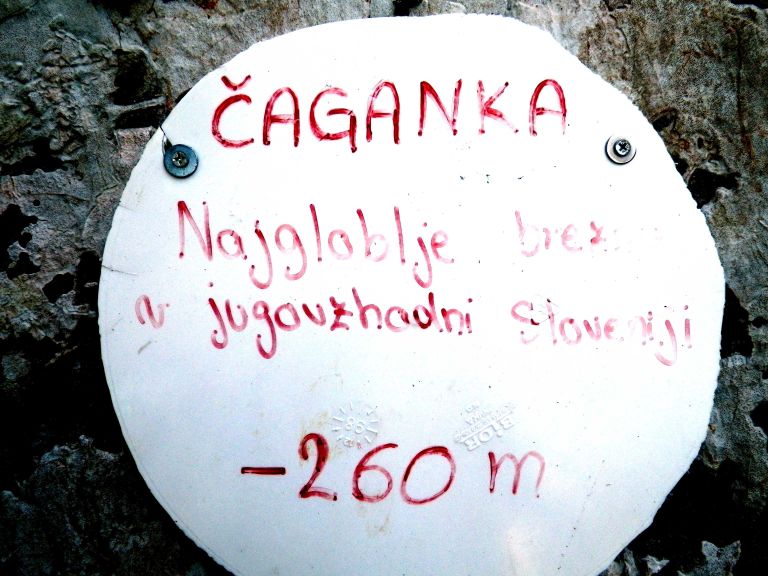 ČAGANKA
Najgloblje brezno
v jugovzhodni Sloveniji
-260 m